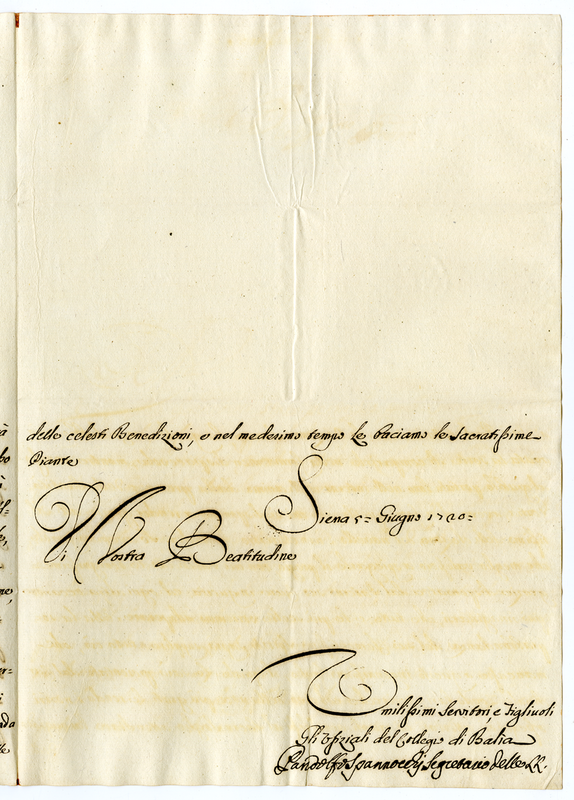 delle celesti Benedizioni, e nel medesimo tempo le baciamo le Sacratissime
Piante
Siena 5= Giugno 1720=
Di Vostra Beatitudine
Umilissimi Servitori, e Figliuoli
Gli Ufiziali del Collegio di Balia
Pandolfo Spannocchij Segretario delle LL.